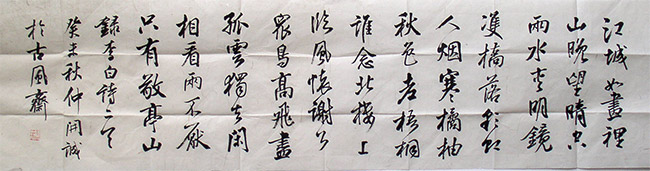 江城如畫裡
山晚望晴空
兩水夾明鏡
雙橋落彩虹
人烟寒橘柚
秋色老梧桐
誰念北樓上
臨風懷謝公
眾鳥高飛盡
孤雲獨去閑
相看兩不厭
只有敬亭山
錄李白詩二首
癸未秋仲開誠
於古風齋